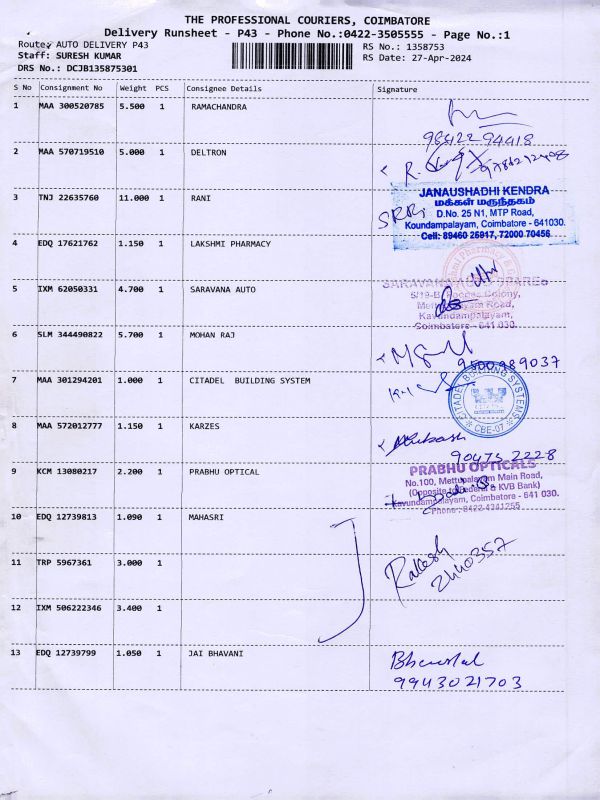 THE PROFESSIONAL COURIERS, COIMBATORE
Delivery Runsheet - P43 - Phone No.:0422-3505555 - Page No.:1
Route: AUTO DELIVERY P43
RS No.: 1358753
Staff: SURESH KUMAR
RS Date: 27-Apr-2024
DRS No.: DCJB135875301
S No Consignment No Weight PCS Consignee Details Signature
1 MAA 300520785 5.500 1 RAMACHANDRA
98422 94418
2 MAA 570719510 5.000 1 DELTRON
R.
3 TNJ 22635760 11.000 1 RANI
SRRi
JANAUSHADHI KENDRA
மக்கள் மருந்தகம்
D.No. 25 N1, MTP Road,
Koundampalayam, Coimbatore - 641030.
Cell: 89460 25917, 72000 70456
4 EDQ 17621762 1.150 1 LAKSHMI PHARMACY
5 IXM 62050331 4.700 1 SARAVANA AUTO
SARAVANA AUTO SPARES
Kavundampalayam,
Coimbatore - 641 030.
6 SLM 344490822 5.700 1 MOHAN RAJ
9500989037
7 MAA 301294201 1.000 1 CITADEL BUILDING SYSTEM
CITADEL BUILDING SYSTEMS
CBE-07
8 MAA 572012777 1.150 1 KARZES
90475 2228
9 KCM 13080217 2.200 1 PRABHU OPTICAL
PRABHU OPTICALS
No.100, Mettupalayam Main Road,
(Opposite to Federal & KVB Bank)
Kavundampalayam, Coimbatore - 641 030.
Phone : 0422-4341255
10 EDQ 12739813 1.090 1 MAHASRI
11 TRP 5967361 3.000 1
Rakesh
2440357
12 IXM 506222346 3.400 1
13 EDQ 12739799 1.050 1 JAI BHAVANI
9943021703